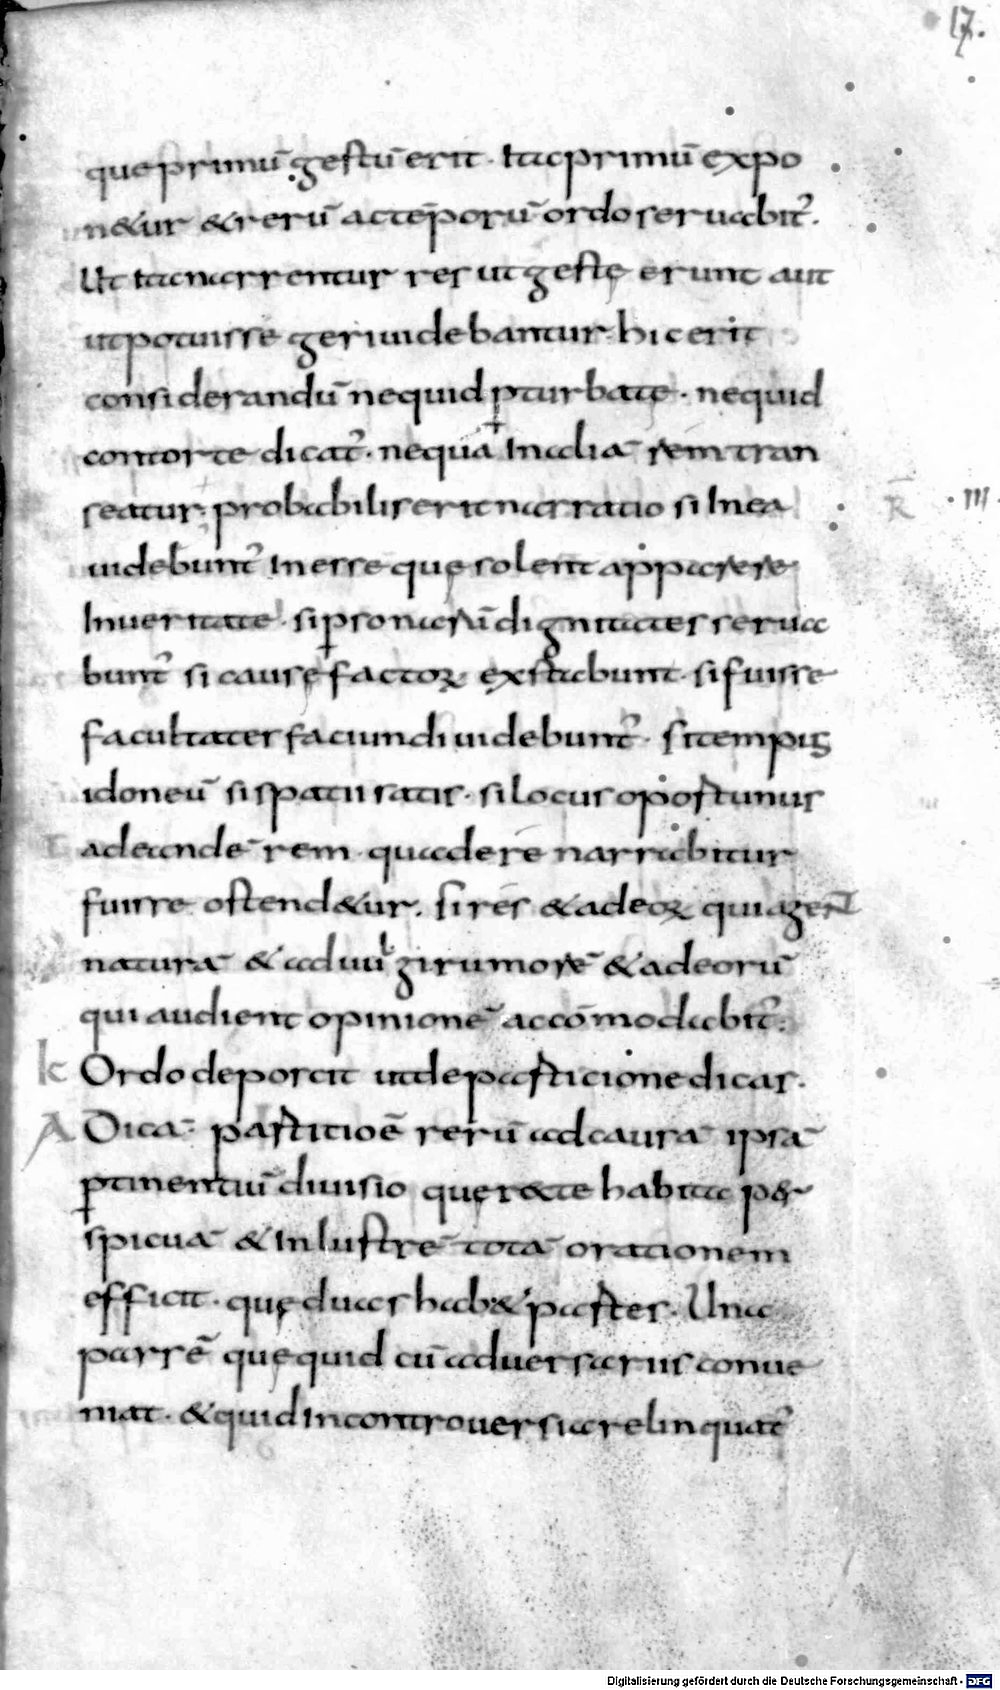 17.
que primū gestū erit · ita primū expo
n&ur & rerū ac tēporū ordo seruabit᷑.
Ut ita narrentur res ut gestę erunt aut
ut potuisse geri uidebantur · hic erit
considerandū nequid ꝑturbate · nequid
contorte dicat᷑ · nequa in aliā rem tran
seatur · probabilis erit narratio si in ea
uidebunt᷑ inesse quę solent apparere
in ueritate · si ꝑsonarū dignitates serua
bunt᷑ si causę factoꝝ exstabunt · si fuisse
facultates faciundi uidebunt᷑ · si tempus
idoneū si spatii satis · si locus oportunus
ad eandē rem qua de re narrabitur
fuisse ostend&ur. si res & ad eoꝝ qui agent
naturā & ad uulgi rumorē & ad eorū
qui audient opinionē accōmodabit᷑ :
k Ordo deposcit ut de partitione dicas.
A Dicā · partitioē rerū ad causā ipsā
ꝑtinentiū diuisio quę recte habita per
spicuā & inlustrē totā orationem
efficit · quę duas hab& partes. Unā
partē quę quid cū aduersariis conue
niat · & quid in controuersia relinquat᷑
R̄ · III ·
Digitalisierung gefördert durch die Deutsche Forschungsgemeinschaft - DFG